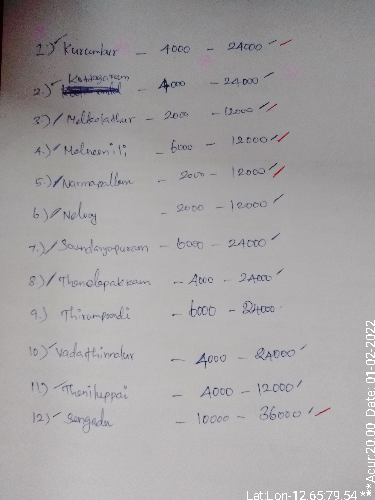 1.) Kurumbur - 4000 - 24000
2.) Kottagaram - 4000 - 24000
3.) Melkolathur - 2000 - 12000
4.) - 6000 - 12000
5.) Narmapallam - 2000 - 12000
6.) Neluoy - 2000 - 12000
7.) Soundaryapuram - 6000 - 24000
8.) Thenelapakkam - 4000 - 24000
9.) - 6000 - 24000
10) Vadathinalur - 4000 - 24000
11) Theniluppai - 4000 - 12000
12) Sengadu - 10000 - 36000
Lat Lon-12.65:79.54 ***Acur:20.00 Date: 01-02-2022